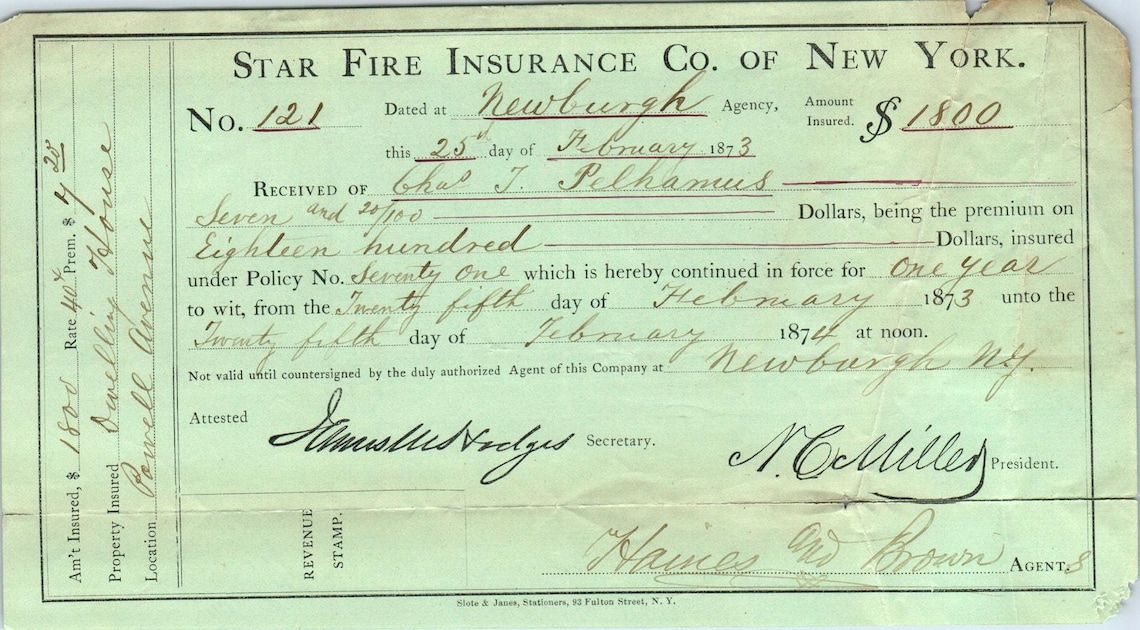 STAR FIRE INSURANCE CO. OF NEW YORK.
No. 121 Dated at Newburgh Agency, Amount Insured. $ 1800
this 25 day of February 1873
RECEIVED OF Chas T. Pelhamus
Seven and 20/100 Dollars, being the premium on
Eighteen hundred Dollars, insured
under Policy No. Seventy One which is hereby continued in force for One year
to wit, from the Twenty fifth day of February 1873 unto the
Twenty fifth day of February 1874 at noon.
Not valid until countersigned by the duly authorized Agent of this Company at Newburgh N.Y.
Attested
Secretary.
N. C. Miller President.
Haines and Brown AGENT.s
REVENUE
STAMP.
Am't Insured, $ 1800 Rate 40 Prem. $ 7 20
Property Insured Dwelling House
Location Powell Avenue
Slote & Janes, Stationers, 93 Fulton Street, N. Y.